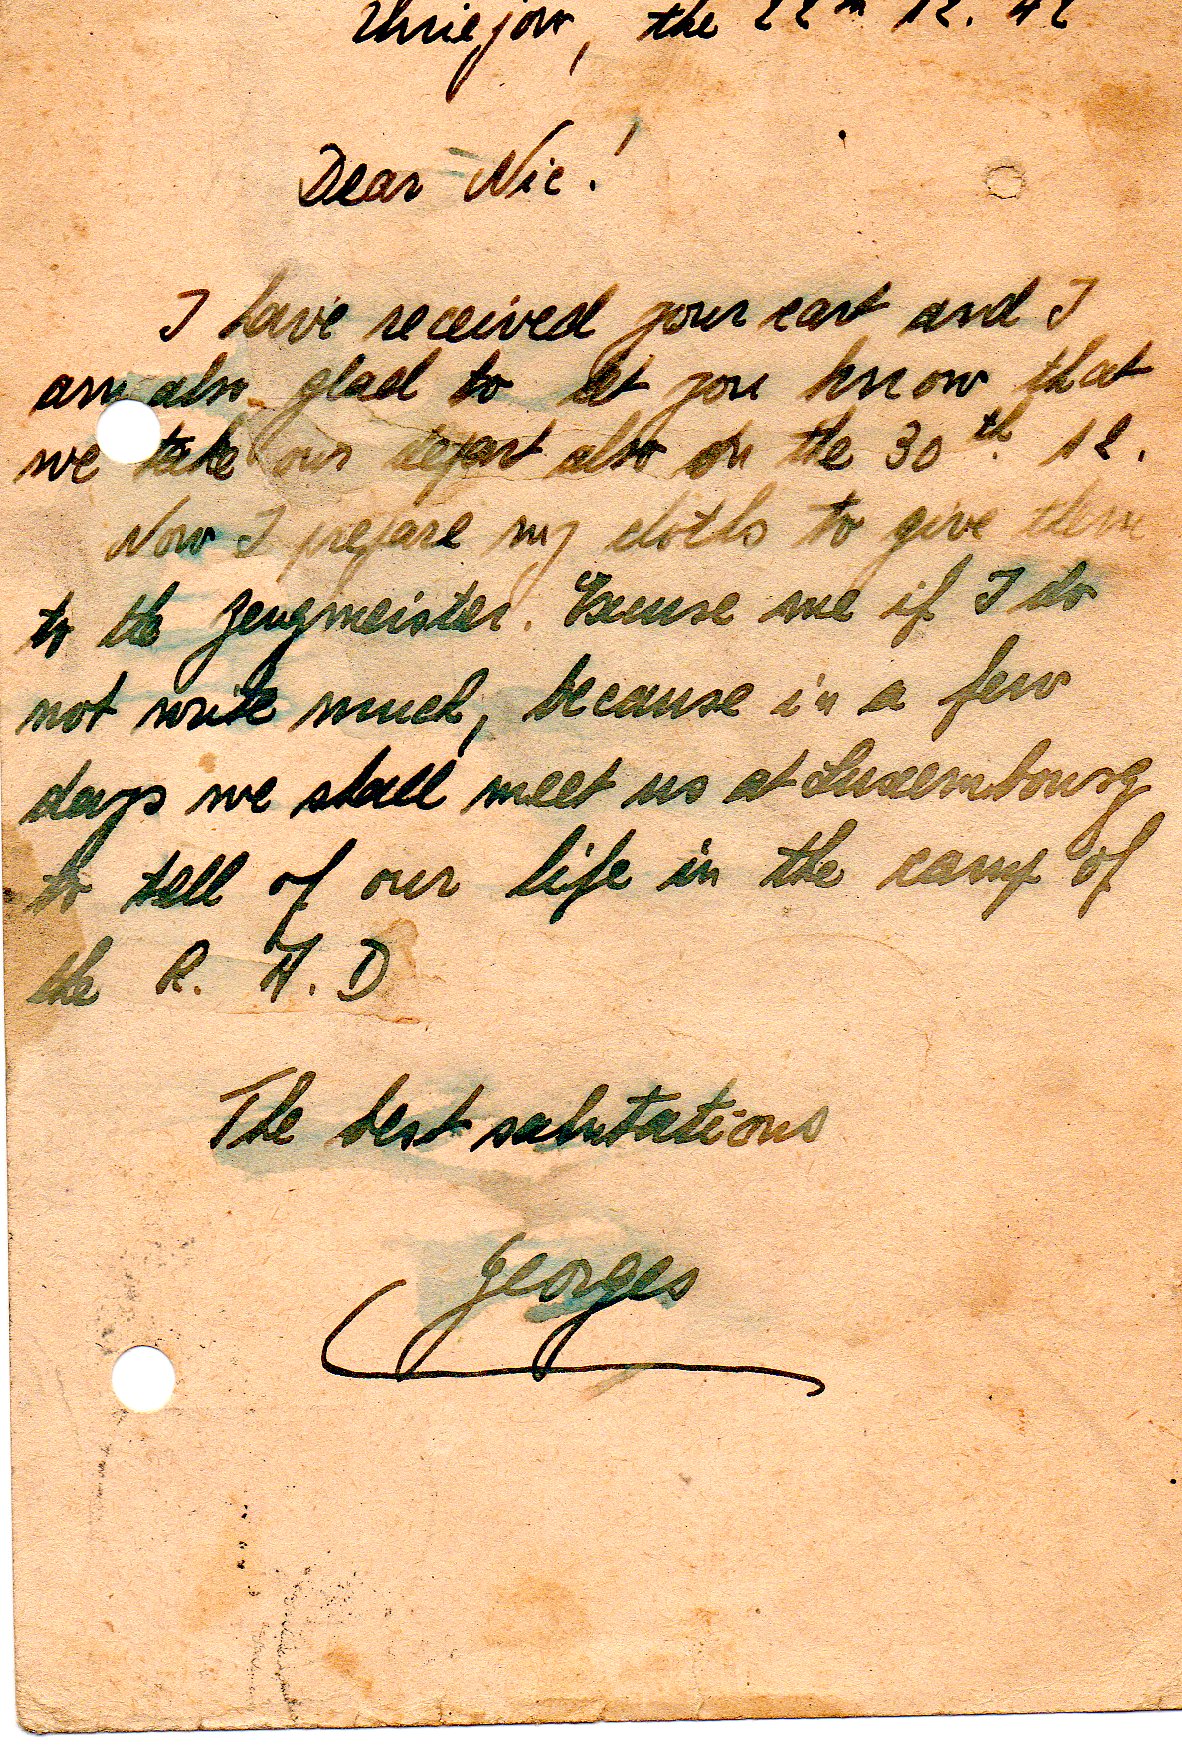 Uniejow, the 22th 12. 42
Dear Nic!
I have received your cart and I
am also glad to let you know that
we take our depart also on the 30th. 12.
Now I prepare my cloths to give them
to the Zeugmeister. Excuse me if I do
not write much, because in a few
days we shall meet us at Luxembourg
to tell of our life in the camp of
the R. A. D
The best salutations
Georges